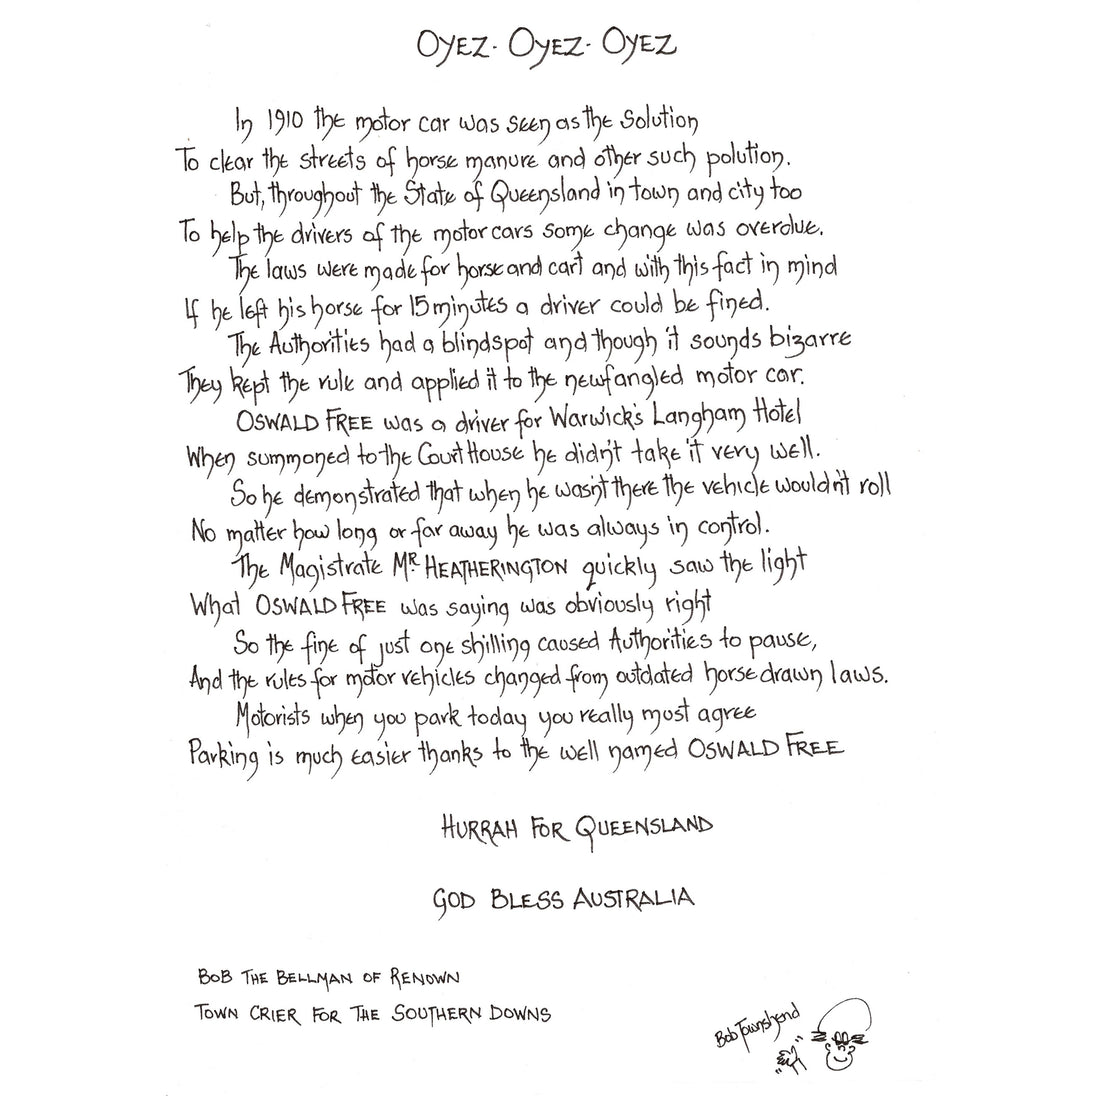 OYEZ· OYEZ· OYEZ
In 1910 the motor car was seen as the solution
To clear the streets of horse manure and other such polution.
But, throughout the State of Queensland in town and city too
To help the drivers of the motor cars some change was overdue.
The laws were made for horse and cart and with this fact in mind
If he left his horse for 15 minutes a driver could be fined.
The Authorities had a blindspot and though it sounds bizarre
They kept the rule and applied it to the newfangled motor car.
OSWALD FREE was a driver for Warwick's Langham Hotel
When summoned to the Court House he didn't take it very well.
So he demonstrated that when he wasn't there the vehicle wouldn't roll
No matter how long or far away he was always in control.
The Magistrate MR HEATHERINGTON quickly saw the light
What OSWALD FREE was saying was obviously right
So the fine of just one shilling caused Authorities to pause,
And the rules for motor vehicles changed from outdated horse drawn laws.
Motorists when you park today you really must agree
Parking is much easier thanks to the well named OSWALD FREE
HURRAH FOR QUEENSLAND
GOD BLESS AUSTRALIA
BOB THE BELLMAN OF RENOWN
TOWN CRIER FOR THE SOUTHERN DOWNS
Bob Townshend